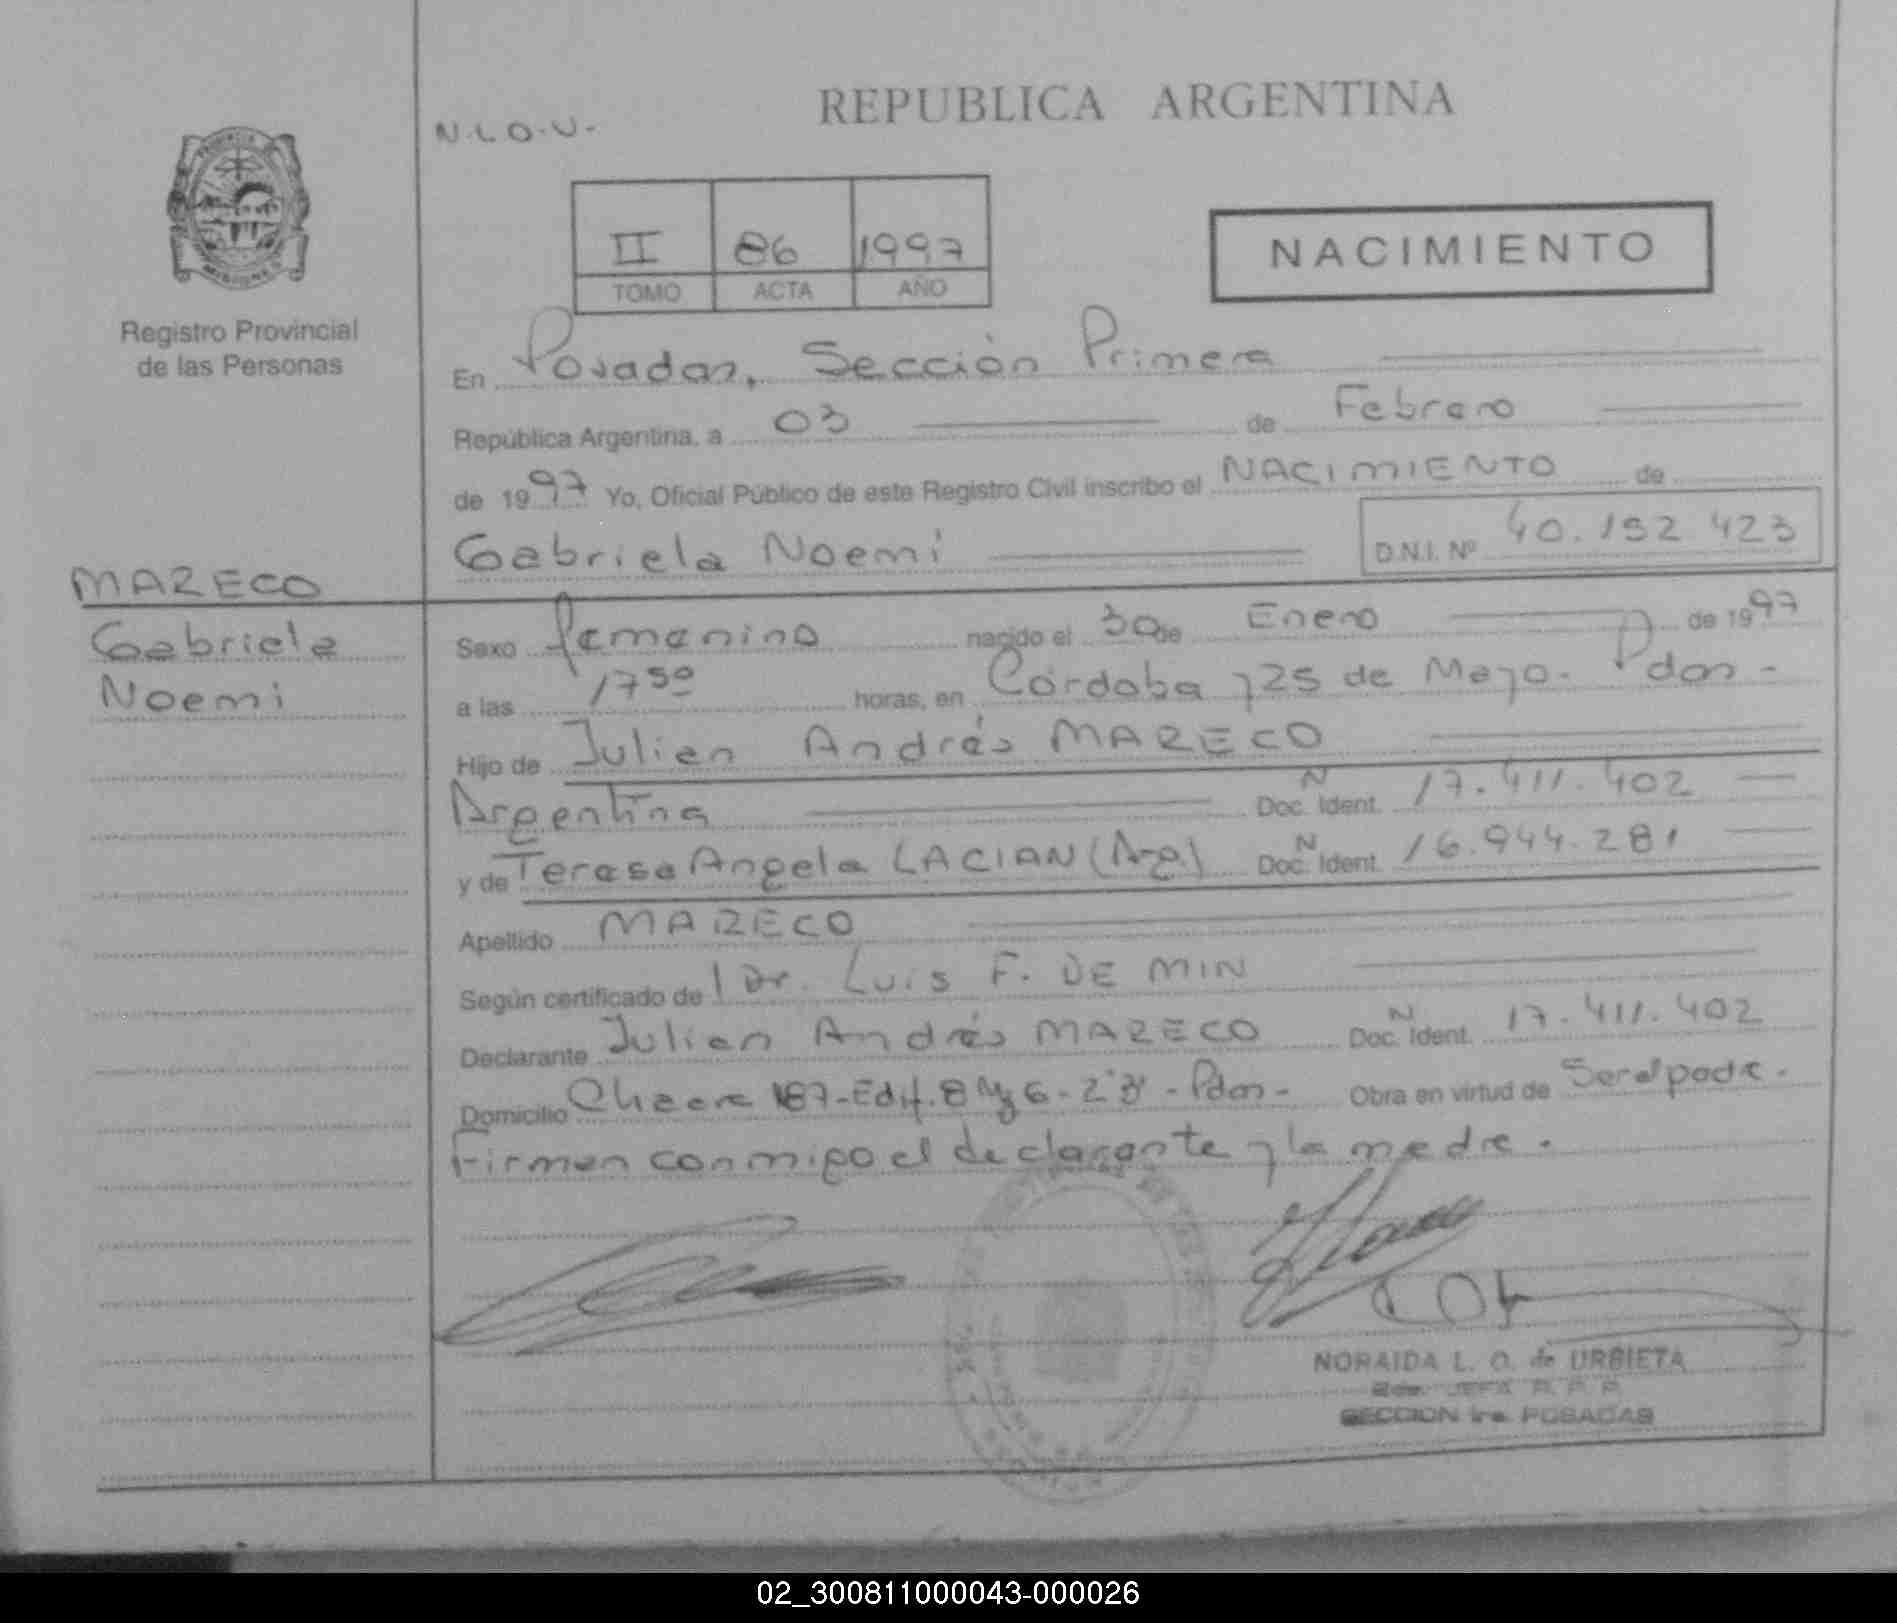 REPUBLICA ARGENTINA
N.L.O.U.-
II 86 1997
TOMO ACTA AÑO
NACIMIENTO
Registro Provincial
de las Personas
En Posadas, Sección Primera
República Argentina, a 03 de Febrero
de 1997 Yo, Oficial Público de este Registro Civil inscribo el NACIMIENTO de
Gabriela Noemi D.N.I. Nº 40.152 423
MARECO
Gabriela
Noemi
Sexo femenino nacido el 30 de Enero de 1997
a las 17 50 horas, en Córdoba y 25 de Mayo. Pdas-
Hijo de Julian Andrés MARECO
Argentina Doc. N Ident. 17.411.402
y de Teresa Angela LACIAN (Arg) Doc. N Ident. 16.944.281
Apellido MARECO
Según certificado de l Dr. Luis F. DE MIN
Declarante Julian Andrés MARECO Doc. N Ident. 17.411.402
Domicilio Chacra 187-Edif. 8 Mz 6- 2º "3"-Pdas- Obra en virtud de Ser el padre.
Firman conmigo el declarante y la madre.
NORAIDA L. O. de URBIETA
JEFA R. P. P.
SECCION 1ra. POSADAS
02_300811000043-000026